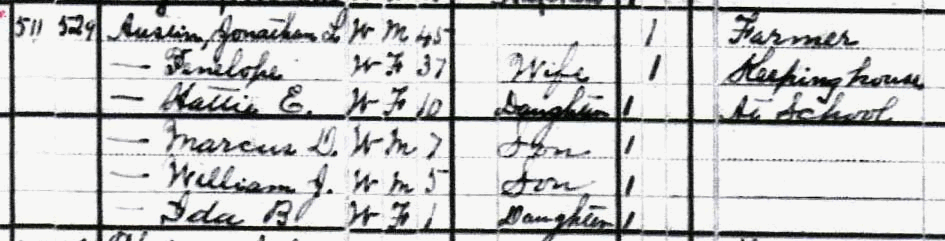 511 529 Austin, Jonathan L W M 45 1 Farmer
— Penelope W F 37 Wife 1 Keeping house
— Hattie E. W F 10 Daughter 1 At School
— Marcus D. W M 7 Son 1
— William J. W M 5 Son 1
— Ida B W F 1 Daughter 1